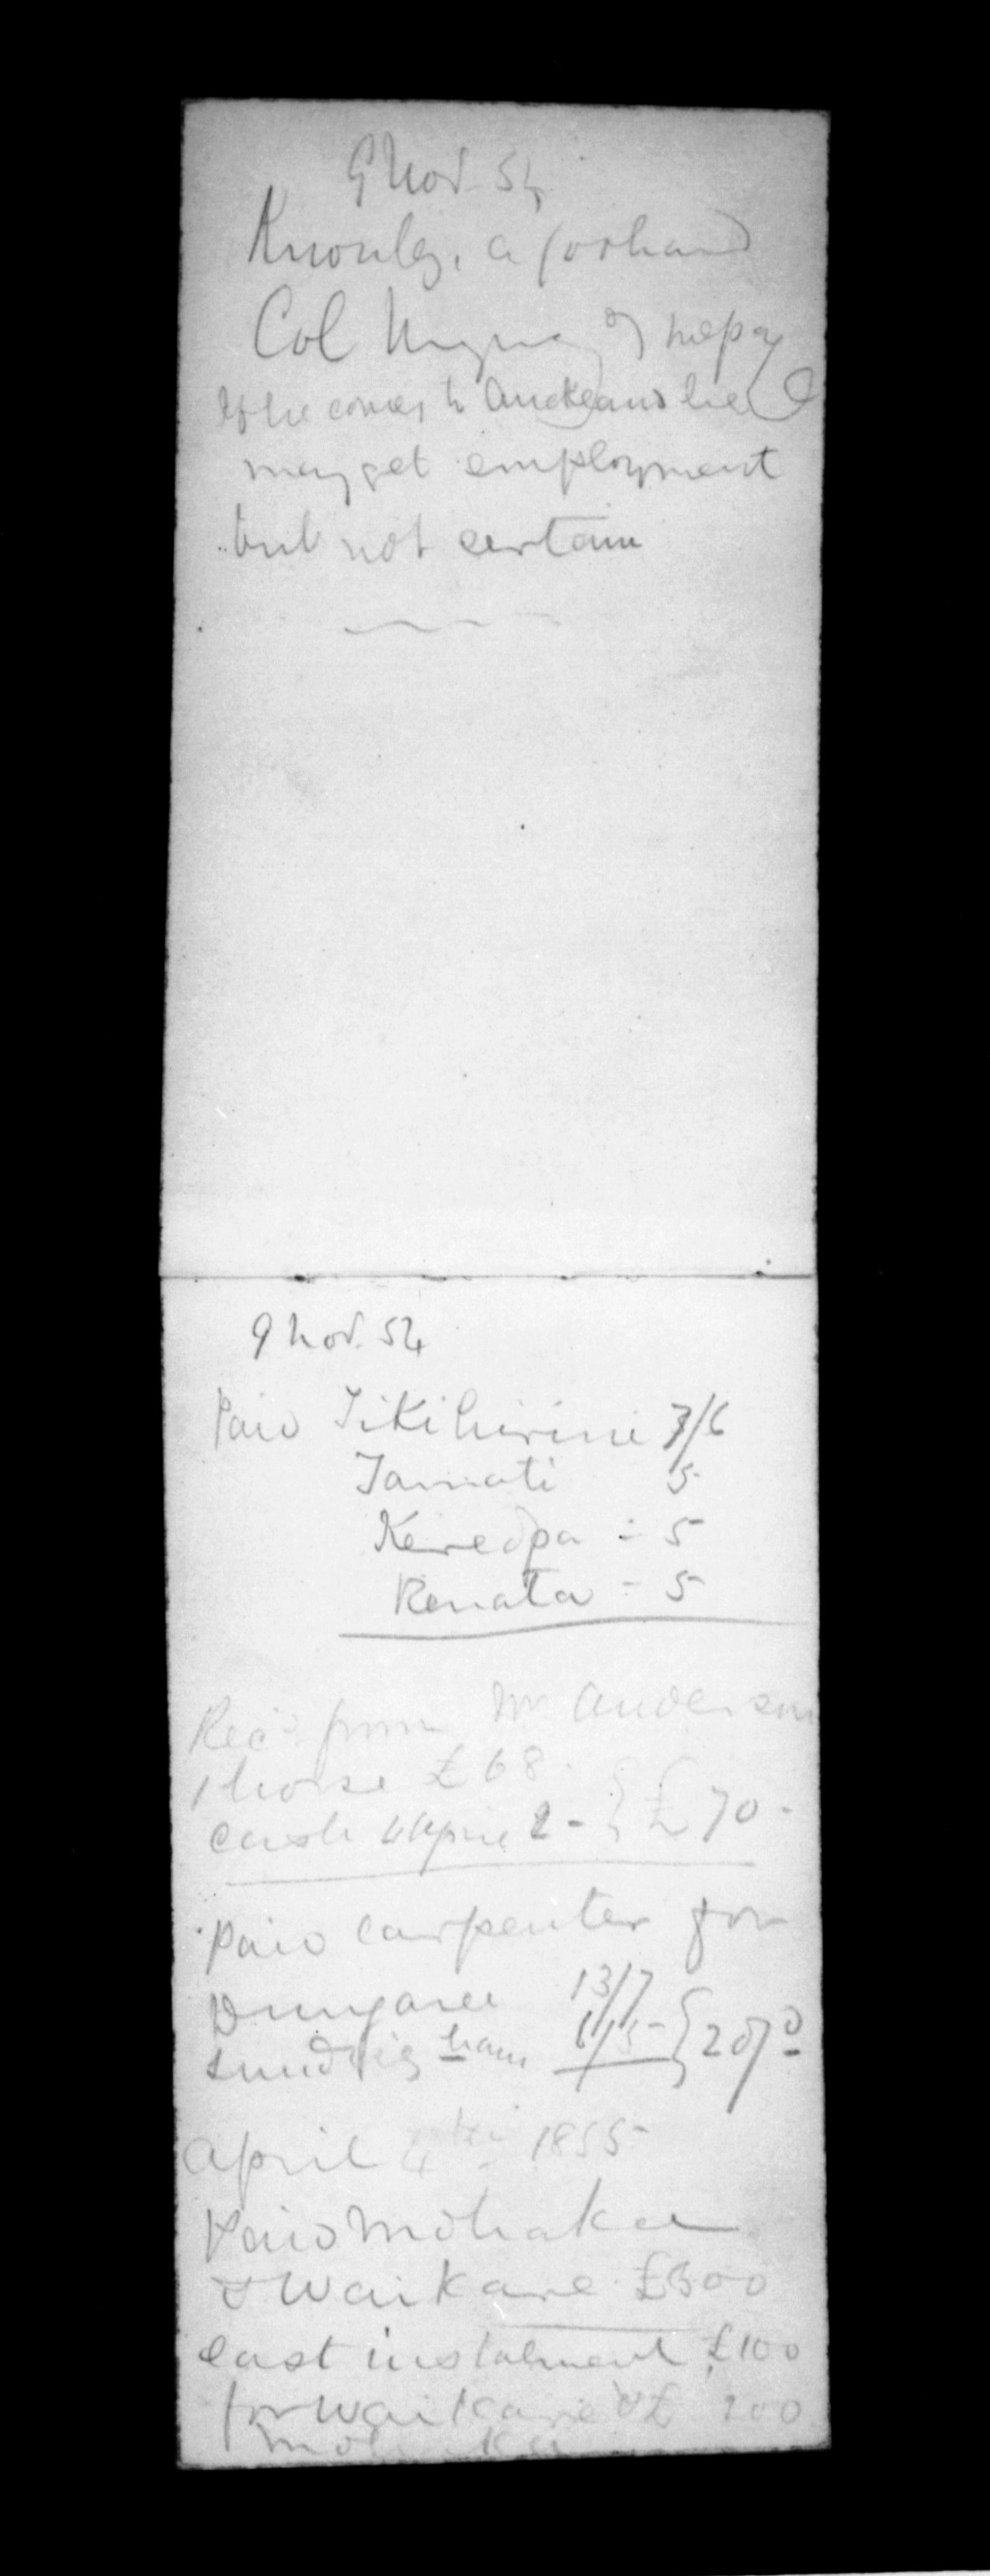 9 Nov. 54
Knowles, a
Col
If he comes to Auckland he
may get employment
but not certain
9 Nov. 54
Paid Tikihirini 7/6
Tamati 5
Kereopa - 5
Renata - 5
Rec'd from Mr Anderson
1 horse £68.
Cash 2 - } £70 -
Paid carpenter for
Dungaree 13/7
Sundries
April 4th 1855
Paid Mohaka
& Waikare £300
last instalment £100
for Waikare & £ 200
Mohaka